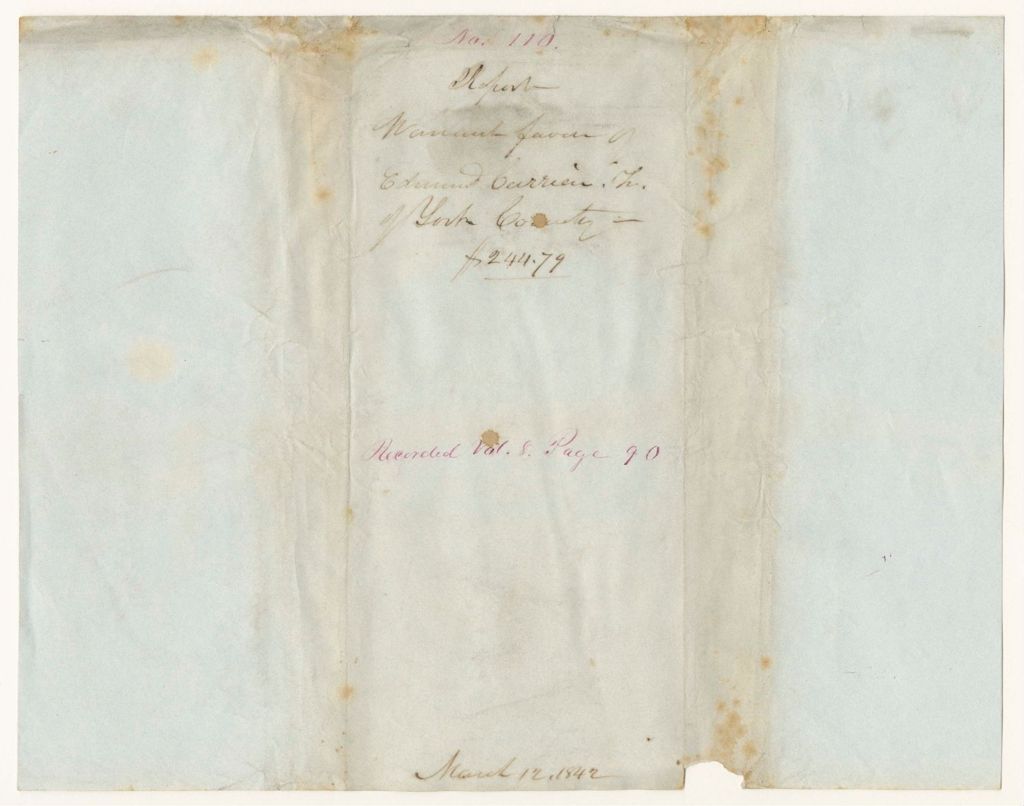 No. 110.
Report
Warrant favor of
Edmund Currier. Tr.
of York County —
$244.79
Recorded Vol. 8. Page 90
March 12, 1842